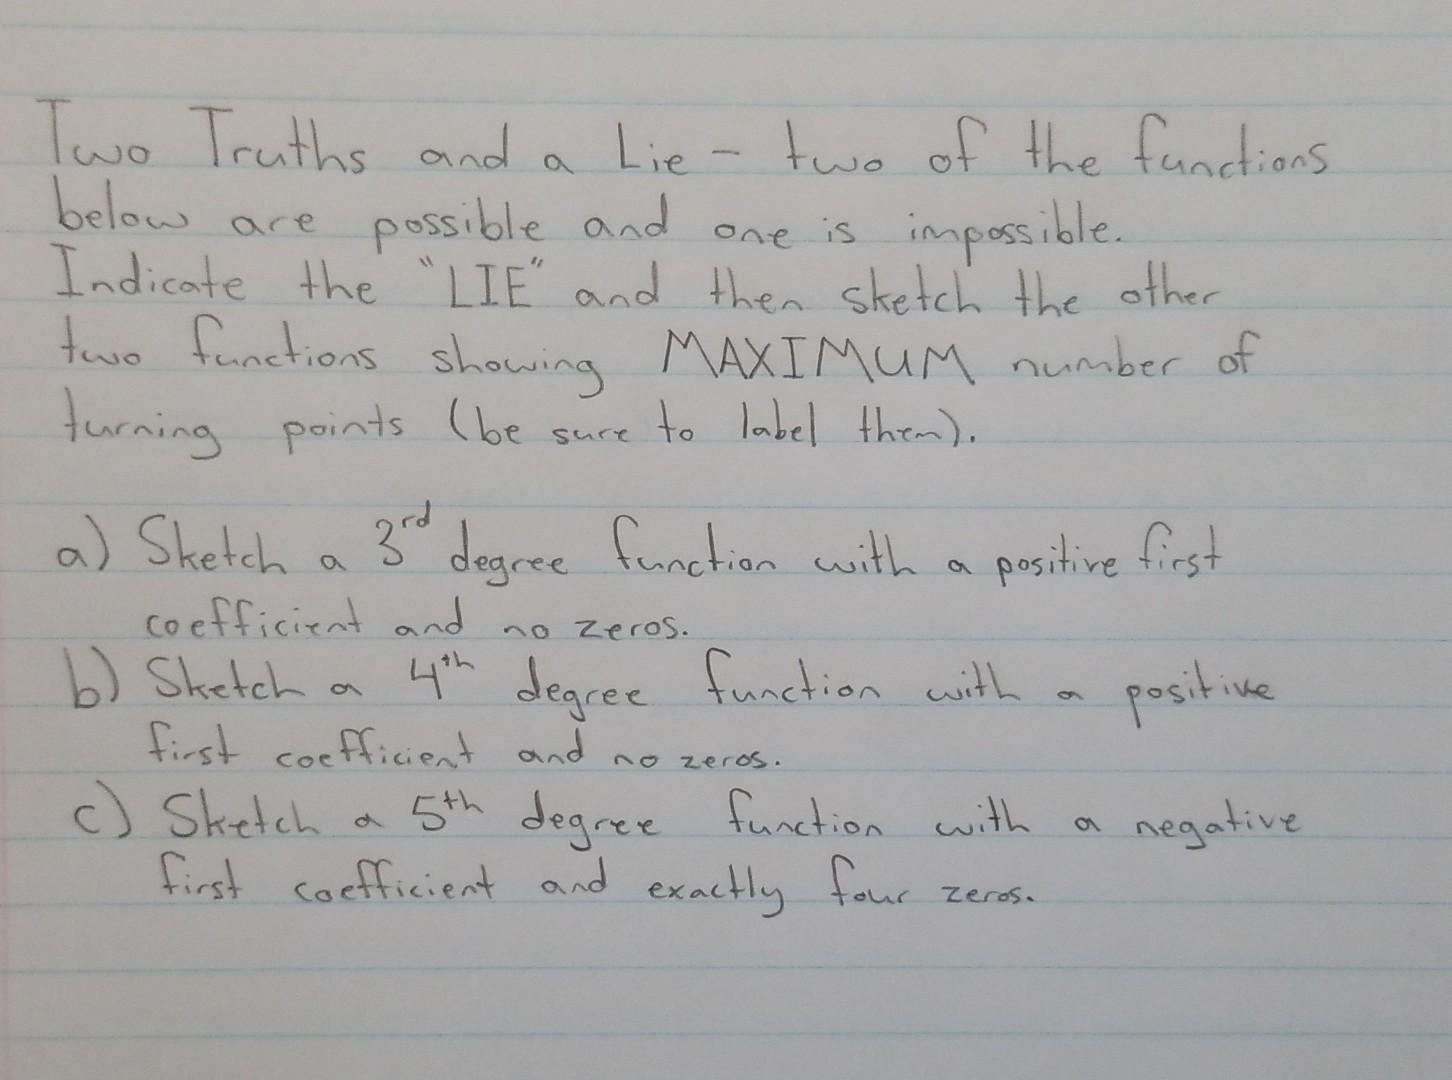 Two Truths and a Lie - two of the functions
below are possible and one is impossible.
Indicate the "LIE" and then sketch the other
two functions showing MAXIMUM number of
turning points (be sure to label them).
a) Sketch a 3rd degree function with a positive first
coefficient and no zeros.
b) Sketch a 4th degree function with a positive
first coefficient and no zeros.
c) Sketch a 5th degree function with a negative
first coefficient and exactly four zeros.